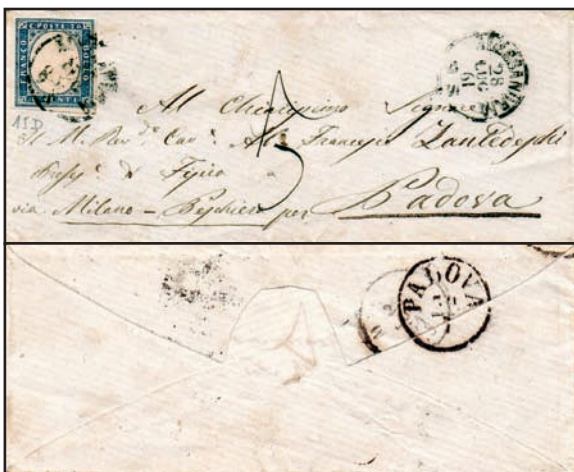 FRANCO C. POSTA 20 BOLLO
CENTI
ALESSANDRIA
28
LUG
61
9 S
15D
Al Chiarissimo Signore
Il M. Rev.do Cav. Ab. Francesco Zantedeschi
Prof. di Fisica a
via Milano - Peschiera per Padova
5
PADOVA